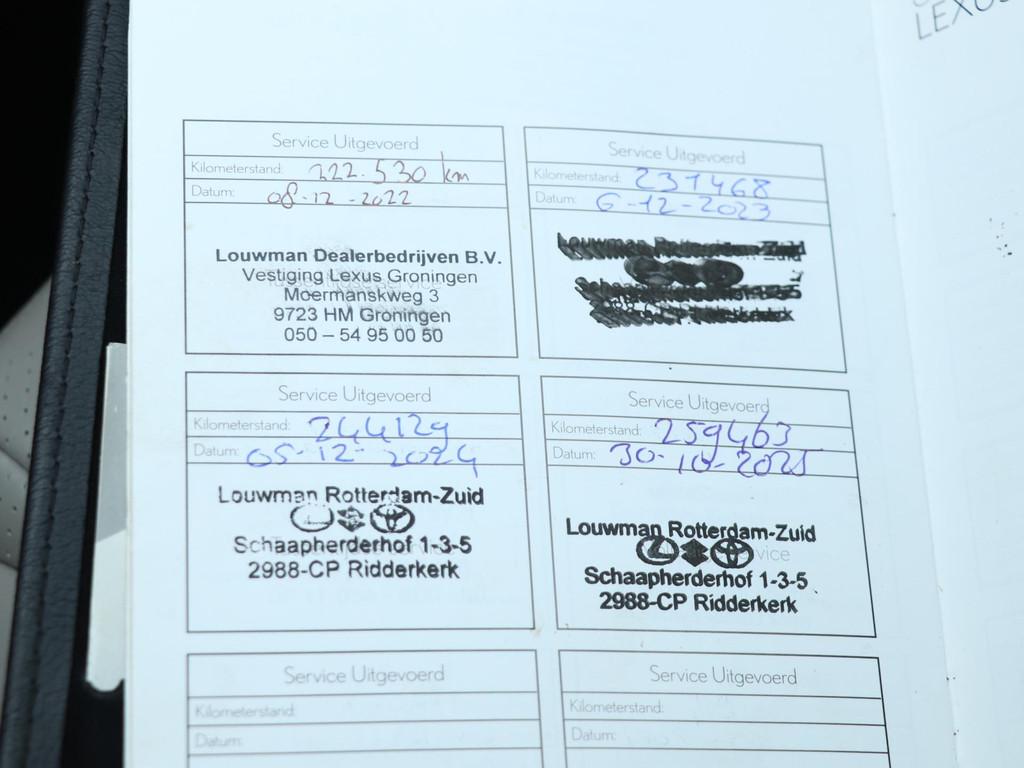 LEXUS
Service Uitgevoerd
Kilometerstand: 222.530 km
Datum: 08-12-2022
Louwman Dealerbedrijven B.V.
Vestiging Lexus Groningen
Moermanskweg 3
9723 HM Groningen
050 – 54 95 00 50
Service Uitgevoerd
Kilometerstand: 231468
Datum: 6-12-2023
Louwman Rotterdam-Zuid
Schaapherderhof 1-3-5
2988-CP Ridderkerk
Service Uitgevoerd
Kilometerstand: 244129
Datum: 05-12-2024
Louwman Rotterdam-Zuid
Schaapherderhof 1-3-5
2988-CP Ridderkerk
Service Uitgevoerd
Kilometerstand: 259463
Datum: 30-10-2025
Louwman Rotterdam-Zuid
Schaapherderhof 1-3-5
2988-CP Ridderkerk
Service Uitgevoerd
Kilometerstand:
Datum:
Service Uitgevoerd
Kilometerstand:
Datum: